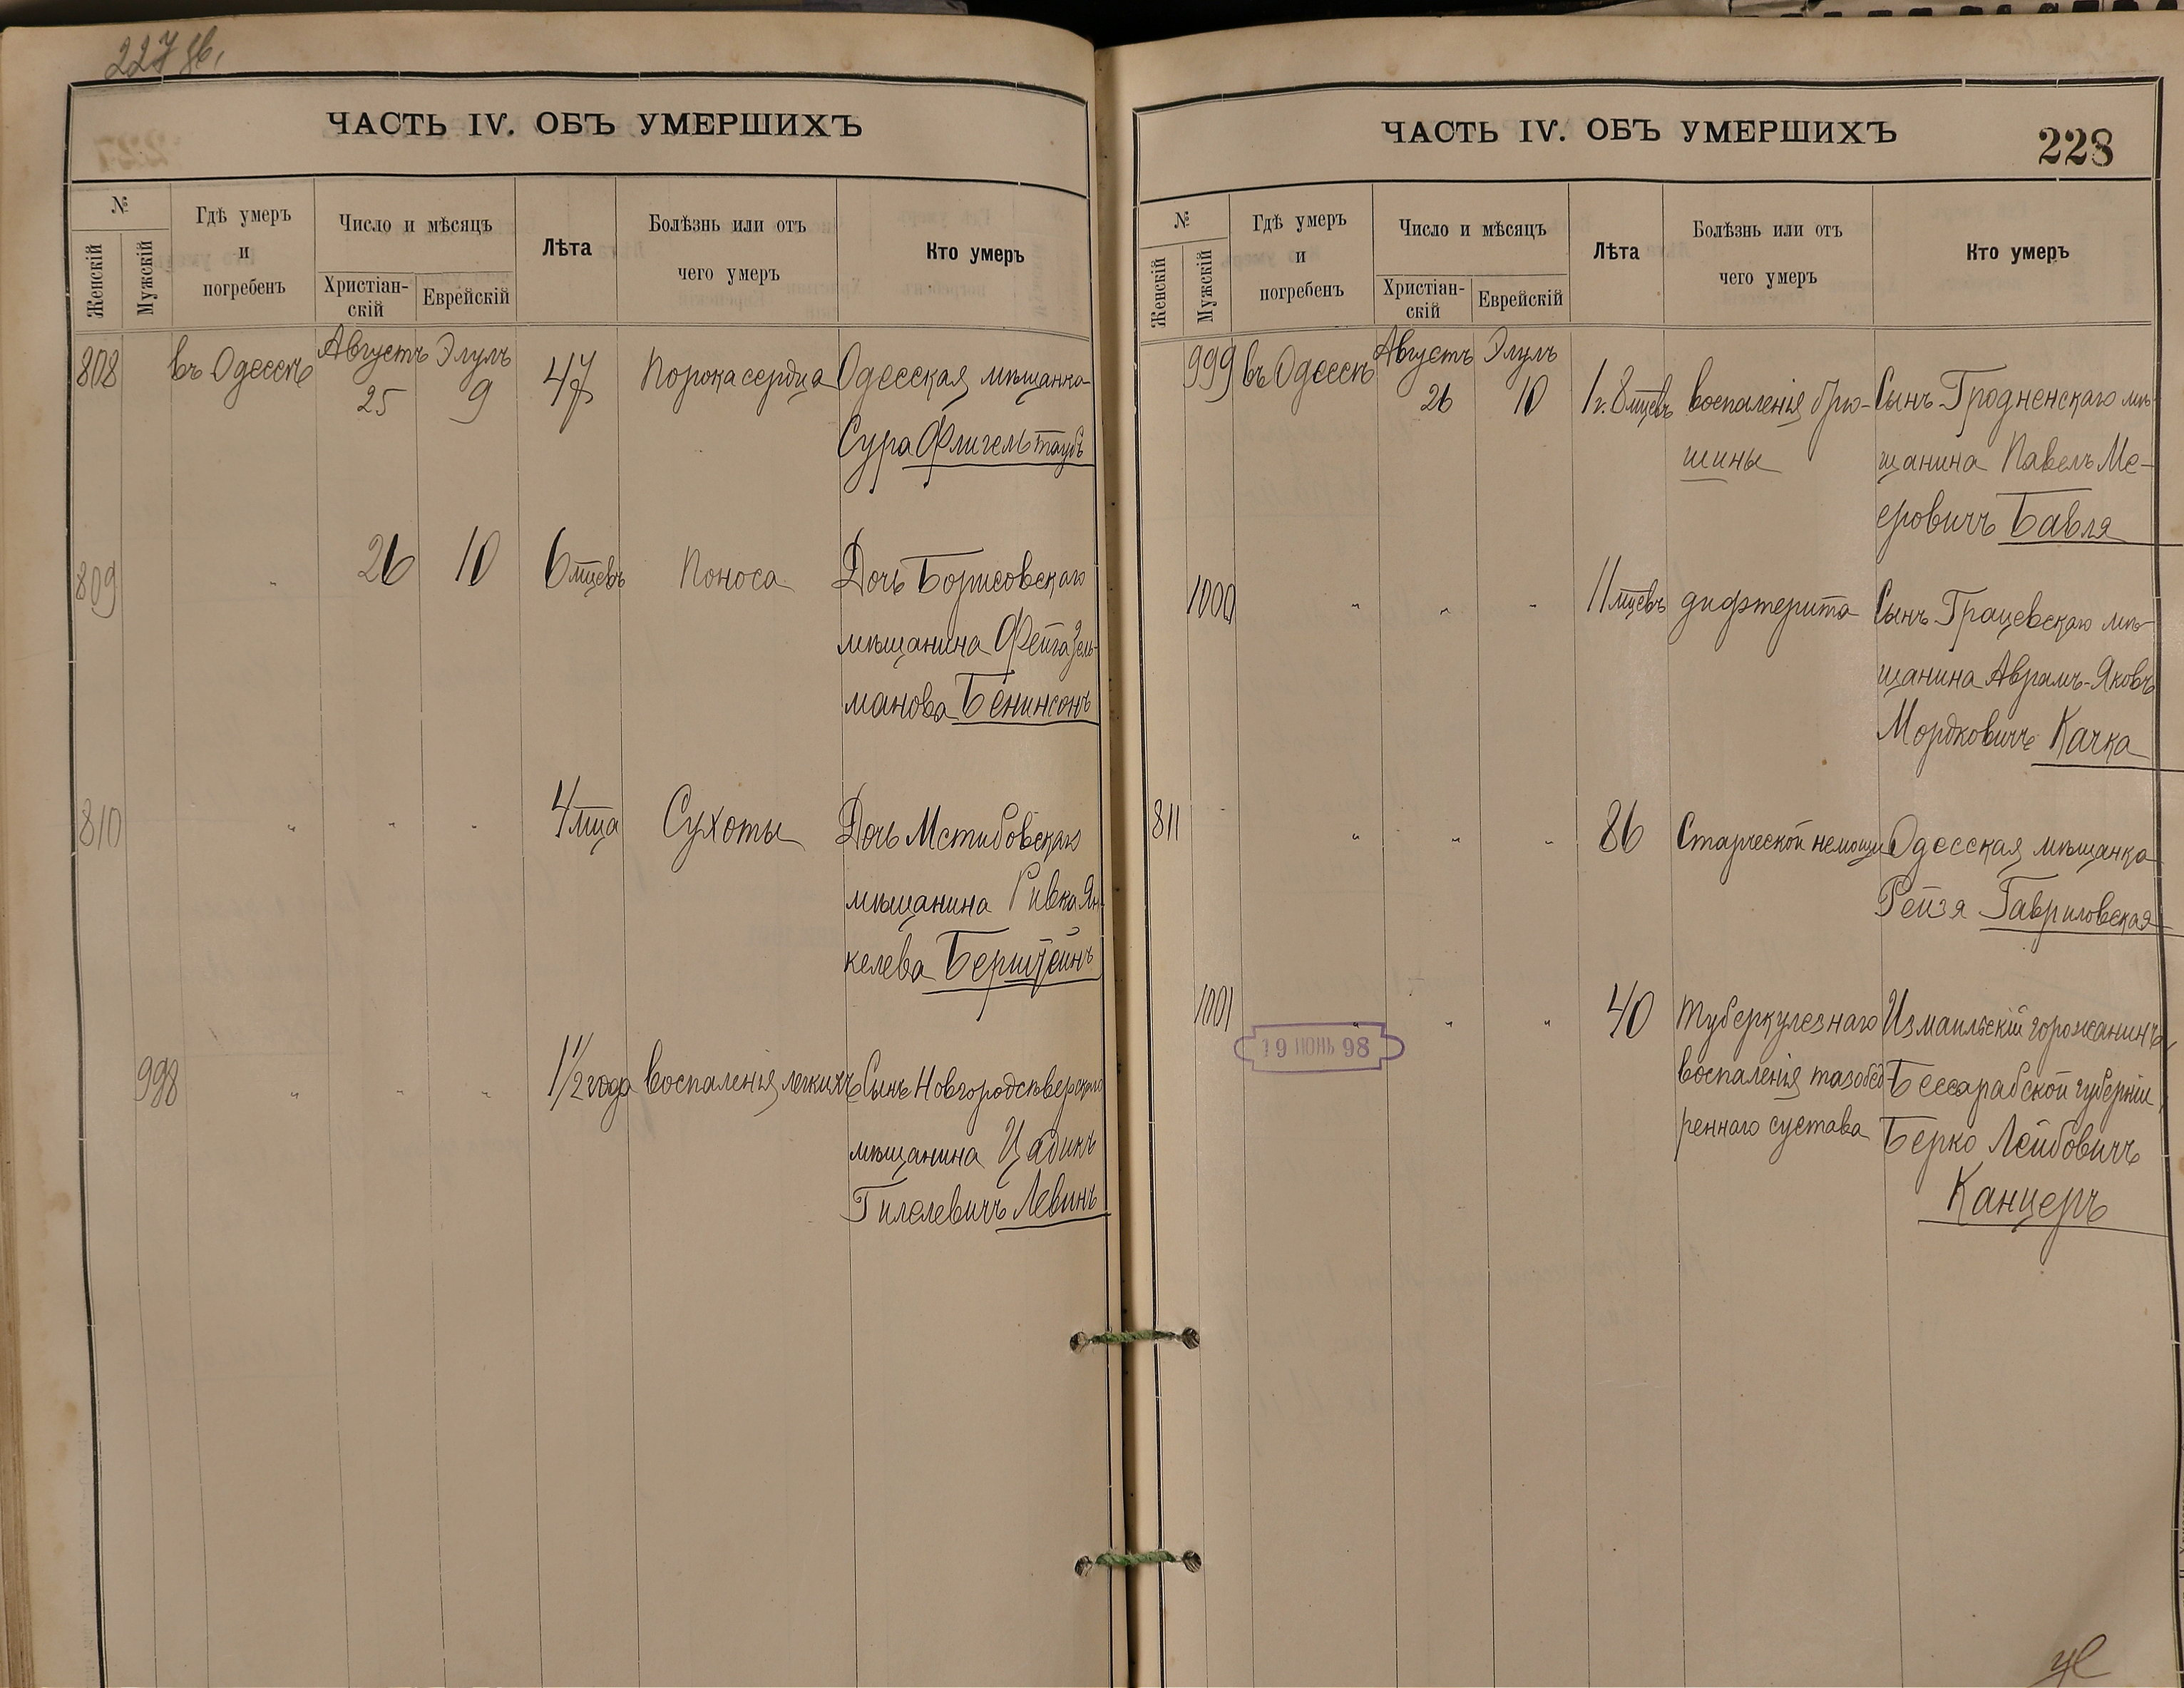 227 об.
ЧАСТЬ IV. ОБЪ УМЕРШИХЪ
№
Женскій
Мужскій
Гдѣ умеръ
и
погребенъ
Число и мѣсяцъ
Христіан-
скій
Еврейскій
Лѣта
Болѣзнь или отъ
чего умеръ
Кто умеръ
808 въ Одессѣ Августъ 25 Элулъ 9 47 Порока сердца Одесская мѣщанка
Сура Флигельтаубъ
809 " 26 10 6 мцевъ Поноса Дочь Борисовскаго
мѣщанина Фейга Зель-
манова Бенинсонъ
810 " " " 4 мца Сухоты Дочь Мстибовскаго
мѣщанина Ривка Ян-
келева Берштейнъ
998 " " " 1 1/2 года воспаленія легкихъ Сынъ Новгородсѣверскаго
мѣщанина Цадикъ
Гилелевичъ Левинъ
ЧАСТЬ IV. ОБЪ УМЕРШИХЪ
228
№
Женскій
Мужскій
Гдѣ умеръ
и
погребенъ
Число и мѣсяцъ
Христіан-
скій
Еврейскій
Лѣта
Болѣзнь или отъ
чего умеръ
Кто умеръ
999 въ Одессѣ Августъ 26 Элулъ 10 1 г. 8 мцевъ воспаленія брю- Сынъ Гродненскаго мѣ-
шины щанина Павелъ Ме-
еровичъ Бавля
1000 " " " 11 мцевъ дифтерита Сынъ Грацевскаго мѣ-
щанина Аврамъ-Яковъ
Мордковичъ Качка
811 " " " 86 Старческой немощи Одесская мѣщанка
Рейзя Гавриловская
1001 " " " 40 Туберкулезнаго Измаильскій горожанинъ
воспаленія тазобед- Бессарабской губерніи
реннаго сустава Берко Лейбовичъ
Канцеръ
19 ІЮНЬ 98